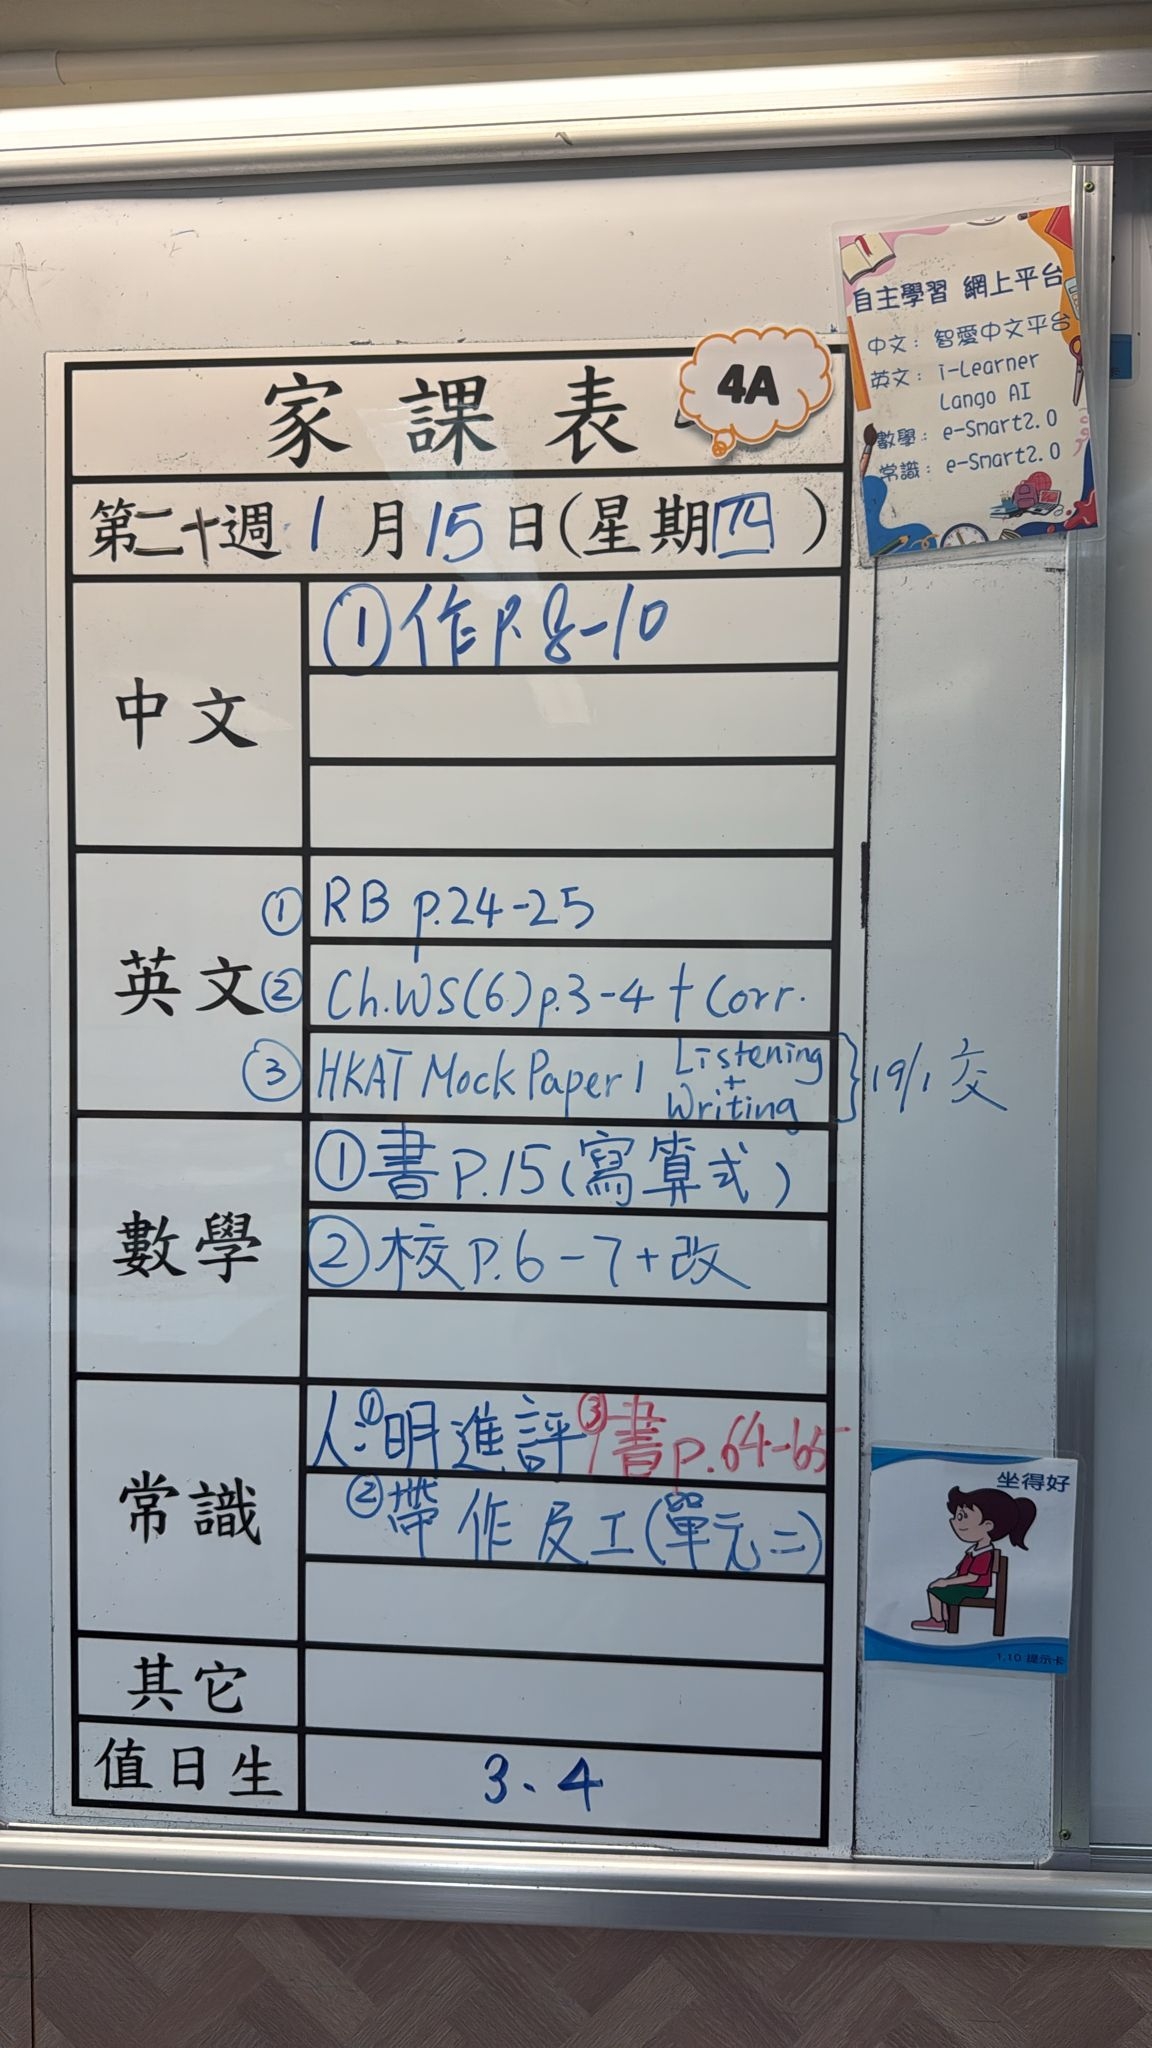 家課表
4A
第二十週 1月15日(星期四)
中文
①作p.8-10
英文
①RB p.24-25
②Ch.WS(6)p.3-4+Corr.
③HKAT Mock Paper 1 Listening + Writing } 19/1交
數學
①書P.15(寫算式)
②校P.6-7+改
常識
人:①明進評 ③書p.64-65
②帶作及工(單元二)
其它
值日生
3、4
自主學習 網上平台
中文: 智愛中文平台
英文: i-Learner
Lango AI
數學: e-Smart2.0
常識: e-Smart2.0
坐得好
1.10 提示卡